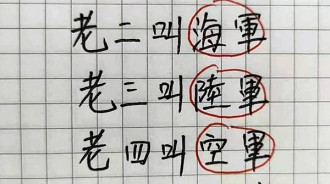 老二叫海軍
老三叫陸軍
老四叫空軍